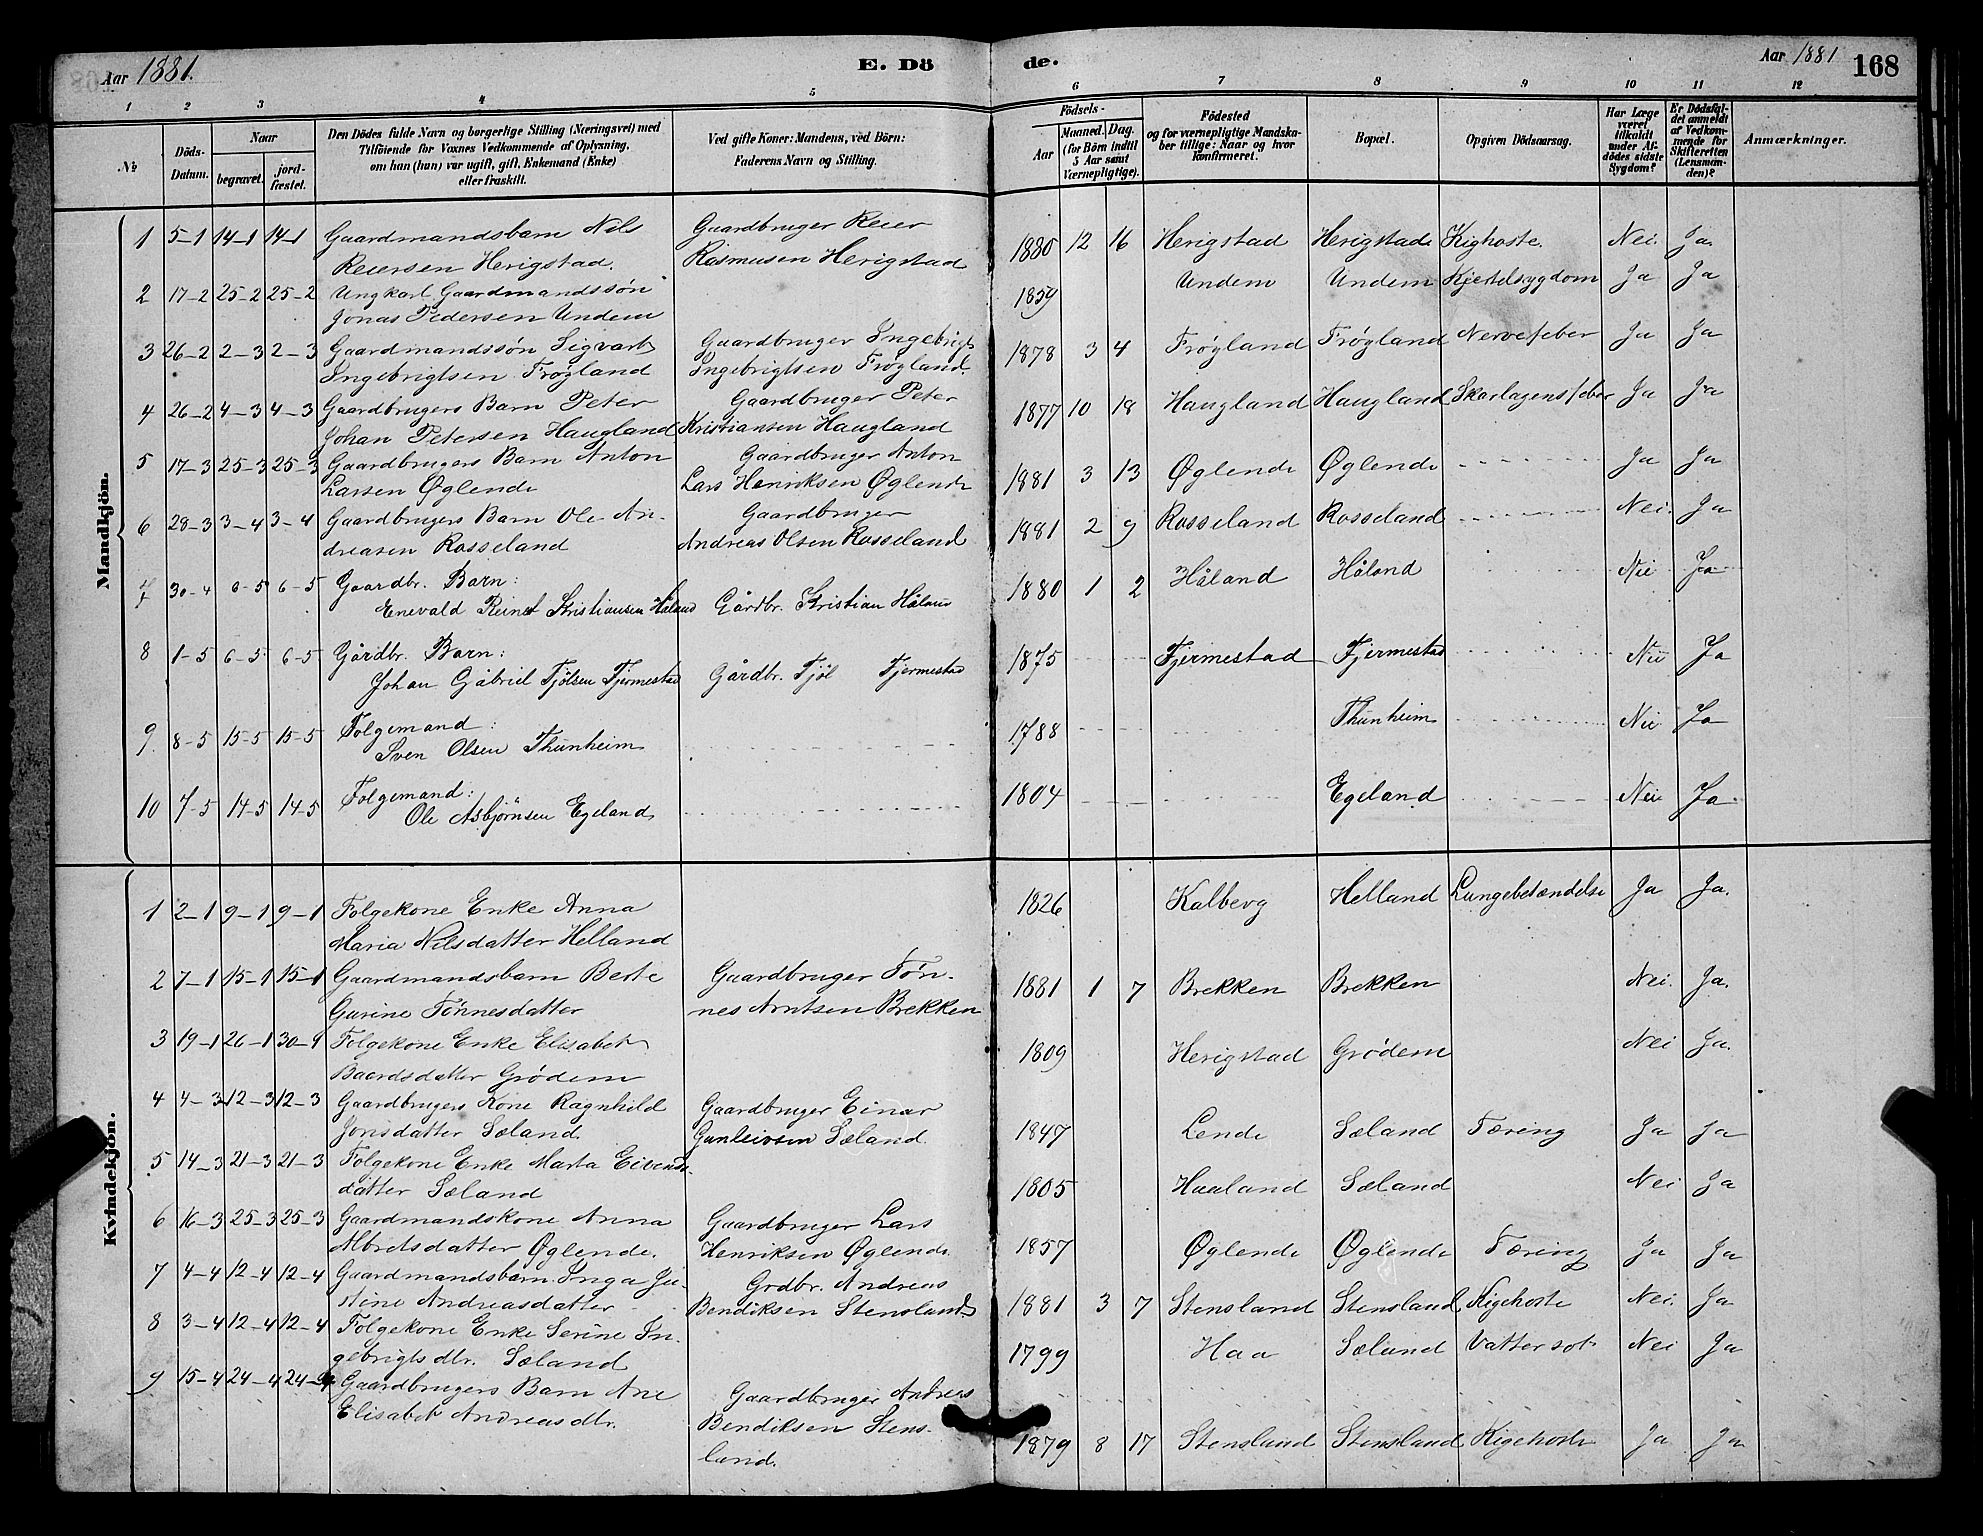 Aar 1881.
E. Dö
de.
Aar 1881
168
1 2 3 4 5 6 7 8 9 10 11 12
№
Döds-Datum.
Naar
begravet.
jord-fæstet.
Den Dödes fulde Navn og borgerlige Stilling (Næringsvei) med
Tilföiende for Voxnes Vedkommende af Oplysning,
om han (hun) var ugift, gift, Enkemand (Enke)
eller fraskilt.
Ved gifte Koner: Mandens, ved Börn:
Faderens Navn og Stilling.
Födsels-
Aar
Maaned. Dag.
(for Börn indtil
5 Aar samt
Værnepligtige).
Födested
og for værnepligtige Mandska-
ber tillige: Naar og hvor
konfirmeret.
Bopæl.
Opgiven Dödsaarsag.
Har Læge
været
tilkaldt
under Af-
dödes sidste
Sygdom?
Er Dödsfal-
det anmeldt
af Vedkom-
mende for
Skifteretten
(Lensman-
den)?
Anmærkninger.
Mandkjön.
1 5-1 14-1 14-1 Gaardmandsbarn Nils Gaardbruger Reier 1880 12 16 Herigstad Herigstad Kighoste. Nei. Ja.
Reiersen Herigstad. Rasmusen Herigstad
2 17-2 25-2 25-2 Ungkarl Gaardmandssön 1859 Undem Undem Kjertelsygdom Ja Ja
Jonas Pedersen Undem
3 26-2 2-3 2-3 Gaardmandssön Sigvart Gaardbruger Ingebrigt 1878 3 4 Frøyland Frøyland Nervefeber Ja Ja
Ingebrigtsen Frøyland Ingebrigtsen Frøyland.
4 26-2 4-3 4-3 Gaardbrugers Barn Peter Gaardbruger Peter 1877 10 18 Haugland Haugland Skarlagensfeber Ja Ja
Johan Petersen Haugland Kristiansen Haugland
5 17-3 25-3 25-3 Gaardbrugers Barn Anton Gaardbruger Anton 1881 3 13 Øglende Øglende Ja Ja
Larsen Øglende Lars Henriksen Øglende
6 28-3 3-4 3-4 Gaardbrugers Barn Ole An- Gaardbruger 1881 2 9 Rosseland Rosseland Nei. Ja
dreasen Rosseland Andreas Olsen Rosseland
7 30-4 6-5 6-5 Gaardbr. Barn: 1880 1 2 Håland Håland Nei Ja
Enevald Reinet Kristiansen Håland Gårdbr. Kristian Håland
8 1-5 6-5 6-5 Gårdbr. Barn: 1875 Fjermestad Fjermestad Nei Ja
Johan Gabriel Fjölsen Fjermestad Gårdbr. Fjöl Fjermestad
9 8-5 15-5 15-5 Folgemand: 1788 Thunheim Nei Ja
Sven Olsen Thunheim
10 7-5 14-5 14-5 Folgemand: 1804 Egeland Nei Ja.
Ole Asbjørnsen Egeland
Kvindekjön.
1 2-1 9-1 9-1 Folgekone Enke Anna 1826 Kalberg Helland Lungebetændelse Ja Ja.
Maria Nilsdatter Helland
2 7-1 15-1 15-1 Gaardmandsbarn Berte Gaardbruger Tön- 1881 1 7 Brekken Brekken Nei. Ja.
Gurine Tönnesdatter nes Arntsen Brekken
3 19-1 26-1 30-1 Folgekone Enke Elisabet 1809 Herigstad Grödem Nei Ja.
Baardsdatter Grödem
4 4-3 12-3 12-3 Gaardbrugers Kone Ragnhild Gaardbruger Einar 1847 Lende Sæland Tæring Ja Ja
Jonsdatter Sæland Gunleivsen Sæland.
5 14-3 21-3 21-3 Folgekone Enke Marta Eivends- 1805 Haaland Sæland Nei Ja
datter Sæland
6 16-3 25-3 25-3 Gaardmandskone Anna Gaardbruger Lars 1857 Øglende Øglende Tæring Ja Ja
Albretsdatter Øglende. Henriksen Øglende.
7 4-4 12-4 12-4 Gaardmandsbarn Inga Ju- Grdbr. Andreas 1881 3 7 Stensland Stensland Kigehoste Nei. Ja
stine Andreasdatter Bendiksen Stensland.
8 3-4 12-4 12-4 Folgekone Enke Serine In- 1799 Haa Sæland Vattersot Nei Ja
gebrigtsdtr. Sæland
9 15-4 24-4 24-4 Gaardbrugers Barn Ane Gaardbruger Andreas 1879 8 17 Stensland Stensland Kigehoste Ja Ja
Elisabet Andreasdtr. Bendiksen Stens-
land.